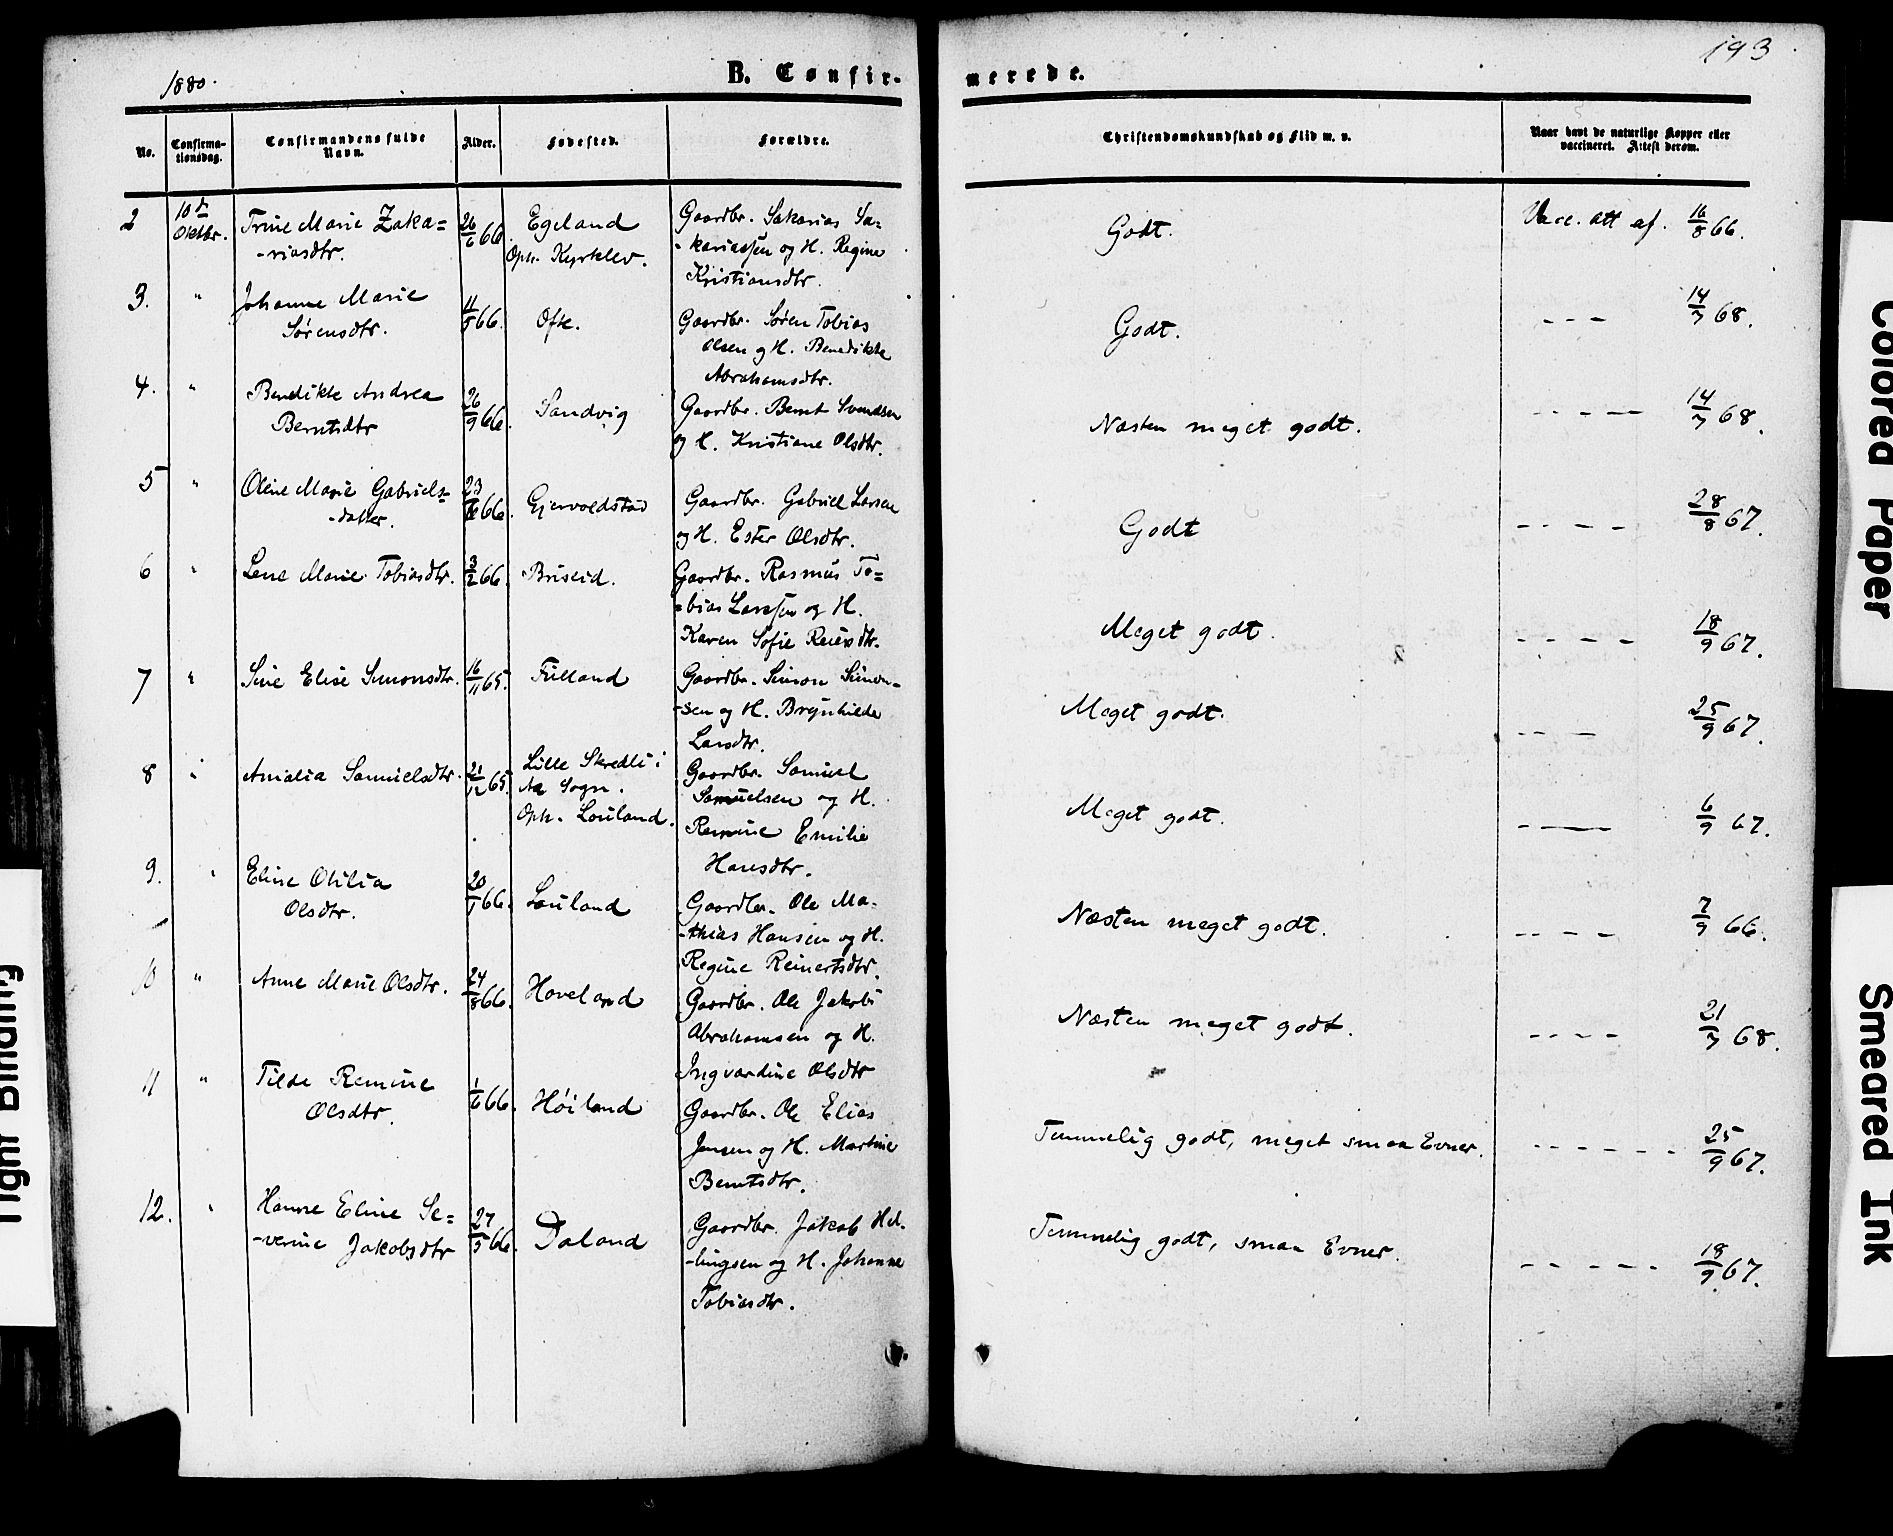 1880.
B. Confir-
merede.
193
No.
Confirma-
tionsdag.
Confirmandens fulde
Navn.
Alder.
Fødested.
Forældre.
Christendomskundskab og Flid m. v.
Naar havt de naturlige Kopper eller
vaccineret. Attest derom.
2 10d Oktbr. Trine Marie Zaka=
-riasdtr.
26/6 66
Egeland
Oph. Kyrklev.
Gaardbr. Sakarias Sa-
-kariassen og H. Regine
Kristiansdtr.
Godt.
Vacc. att af. 16/8 66.
3. " Johanne Marie
Sørensdtr.
11/5 66.
Ofte.
Gaardbr. Søren Tobias
Olsen og H. Benedikte
Abrahamsdtr.
Godt.
- - - 14/7 68.
4. " Benedikte Andrea
Berntsdtr
26/9 66.
Sandvig
Gaardbr. Bernt Svendsen
og H. Kristiane Olsdtr.
Næsten meget godt.
- - - - 14/7 68.
5 " Oline Marie Gabriels-
-datter.
66.
Gjervoldstad
Gaardbr. Gabriel Larsen
og H. Ester Olsdtr.
Godt
- - - - 28/8 67.
6 " Lene Marie Tobiasdtr.
3/2 66.
Briseid.
Gaardbr. Rasmus To=
=bias Larssen og H.
Karen Sofie Reiersdtr.
Meget godt.
- - - - 18/9 67.
7 " Sine Elise Simonsdtr.
16/11 65.
Fidland
Gaardbr. Simon Simon-
-sen og H. Brynhilda
Larsdtr.
Meget godt.
- - - 25/9 67.
8 " Amalia Samuelsdtr.
21/12 65.
Lille Skredli i
Aa Sogn.
Oph. Louland.
Gaardbr. Samuel
Samuelsen og H.
Remine Emilie
Hansdtr.
Meget godt.
- — 6/9 67.
9. " Elise Otilia
Olsdtr.
20/1 66.
Louland
Gaardbr. Ole Ma-
-thias Hansen og H.
Regine Reinertsdtr.
Næsten meget godt.
- - - - 7/9 66.
10 " Anne Marie Olsdtr.
24/8 66.
Hoveland
Gaardbr. Ole Jakobs
Abrahamsen og H.
Ingvardine Olsdtr
Næsten meget godt.
- - - - 21/7 68.
11 " Tilde Remine
Olsdtr.
1/6 66.
Høiland
Gaardbr. Ole Elias
Jensen og H. Martine
Berntsdtr.
Temmelig godt, meget smaa Evner.
- - - - - - 25/9 67.
12. " Hanne Eline Se=
-verine Jakobsdtr
27/5 66.
Daland
Gaardbr. Jakob Hel-
-lingsen og H. Johanne
Tobiasdtr.
Temmelig godt, smaa Evner.
- - - - - 18/9 67.
Tight Binding
Colored Paper
Smeared Ink